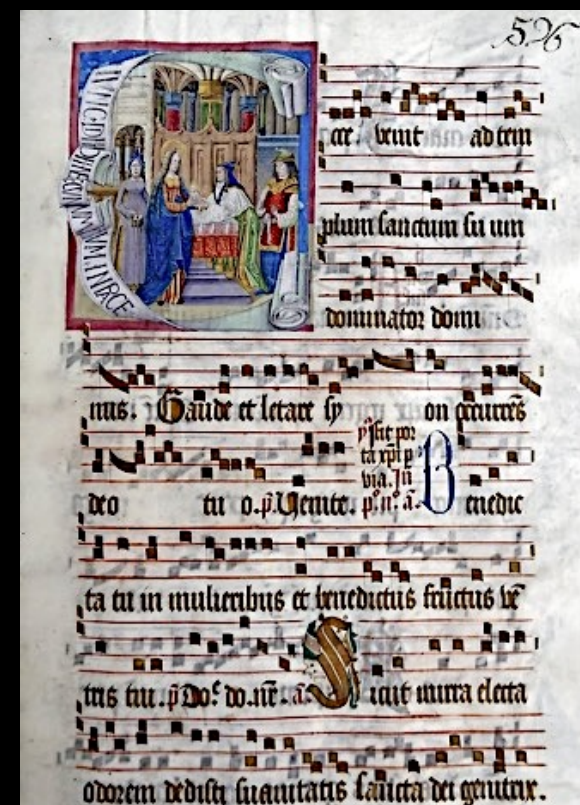 526
cce venit ad tem
plum sanctum su um
dominator domi
nus. Gaude et letare sy on occurrēs
deo tu o. p̄. Venite.
B enedic
ta tu in mulieribus et benedictus fructus vē
tris tui. p̄ Do⁹. do. nr̄. a. S icut mirra electa
odorem dedisti suavitatis sancta dei genitrix.